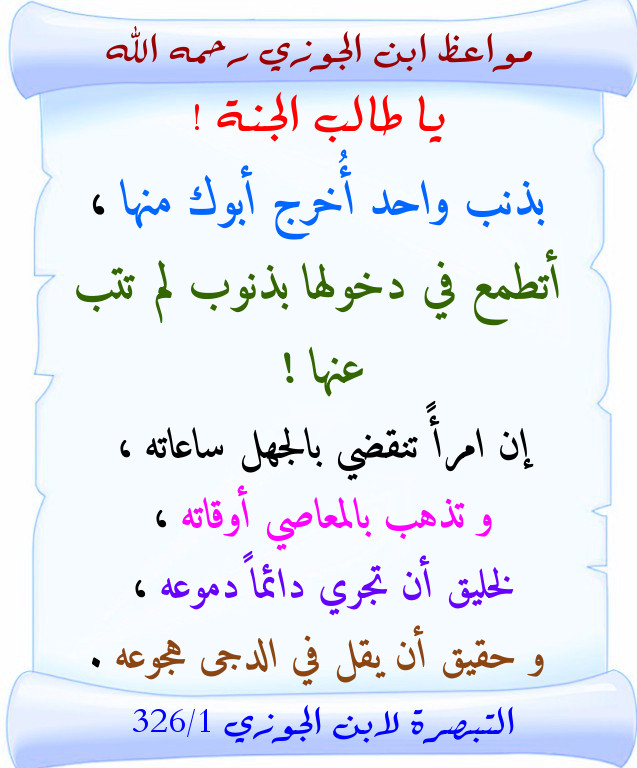 مواعظ ابن الجوزي رحمه الله
يا طالب الجنة !
بذنب واحد أُخرج أبوك منها ،
أتطمع في دخولها بذنوب لم تتب
عنها !
إن امرأً تنقضي بالجهل ساعاته ،
و تذهب بالمعاصي أوقاته ،
لخليق أن تجري دائماً دموعه ،
و حقيق أن يقل في الدجى هجوعه .
التبصرة لابن الجوزي 326/1